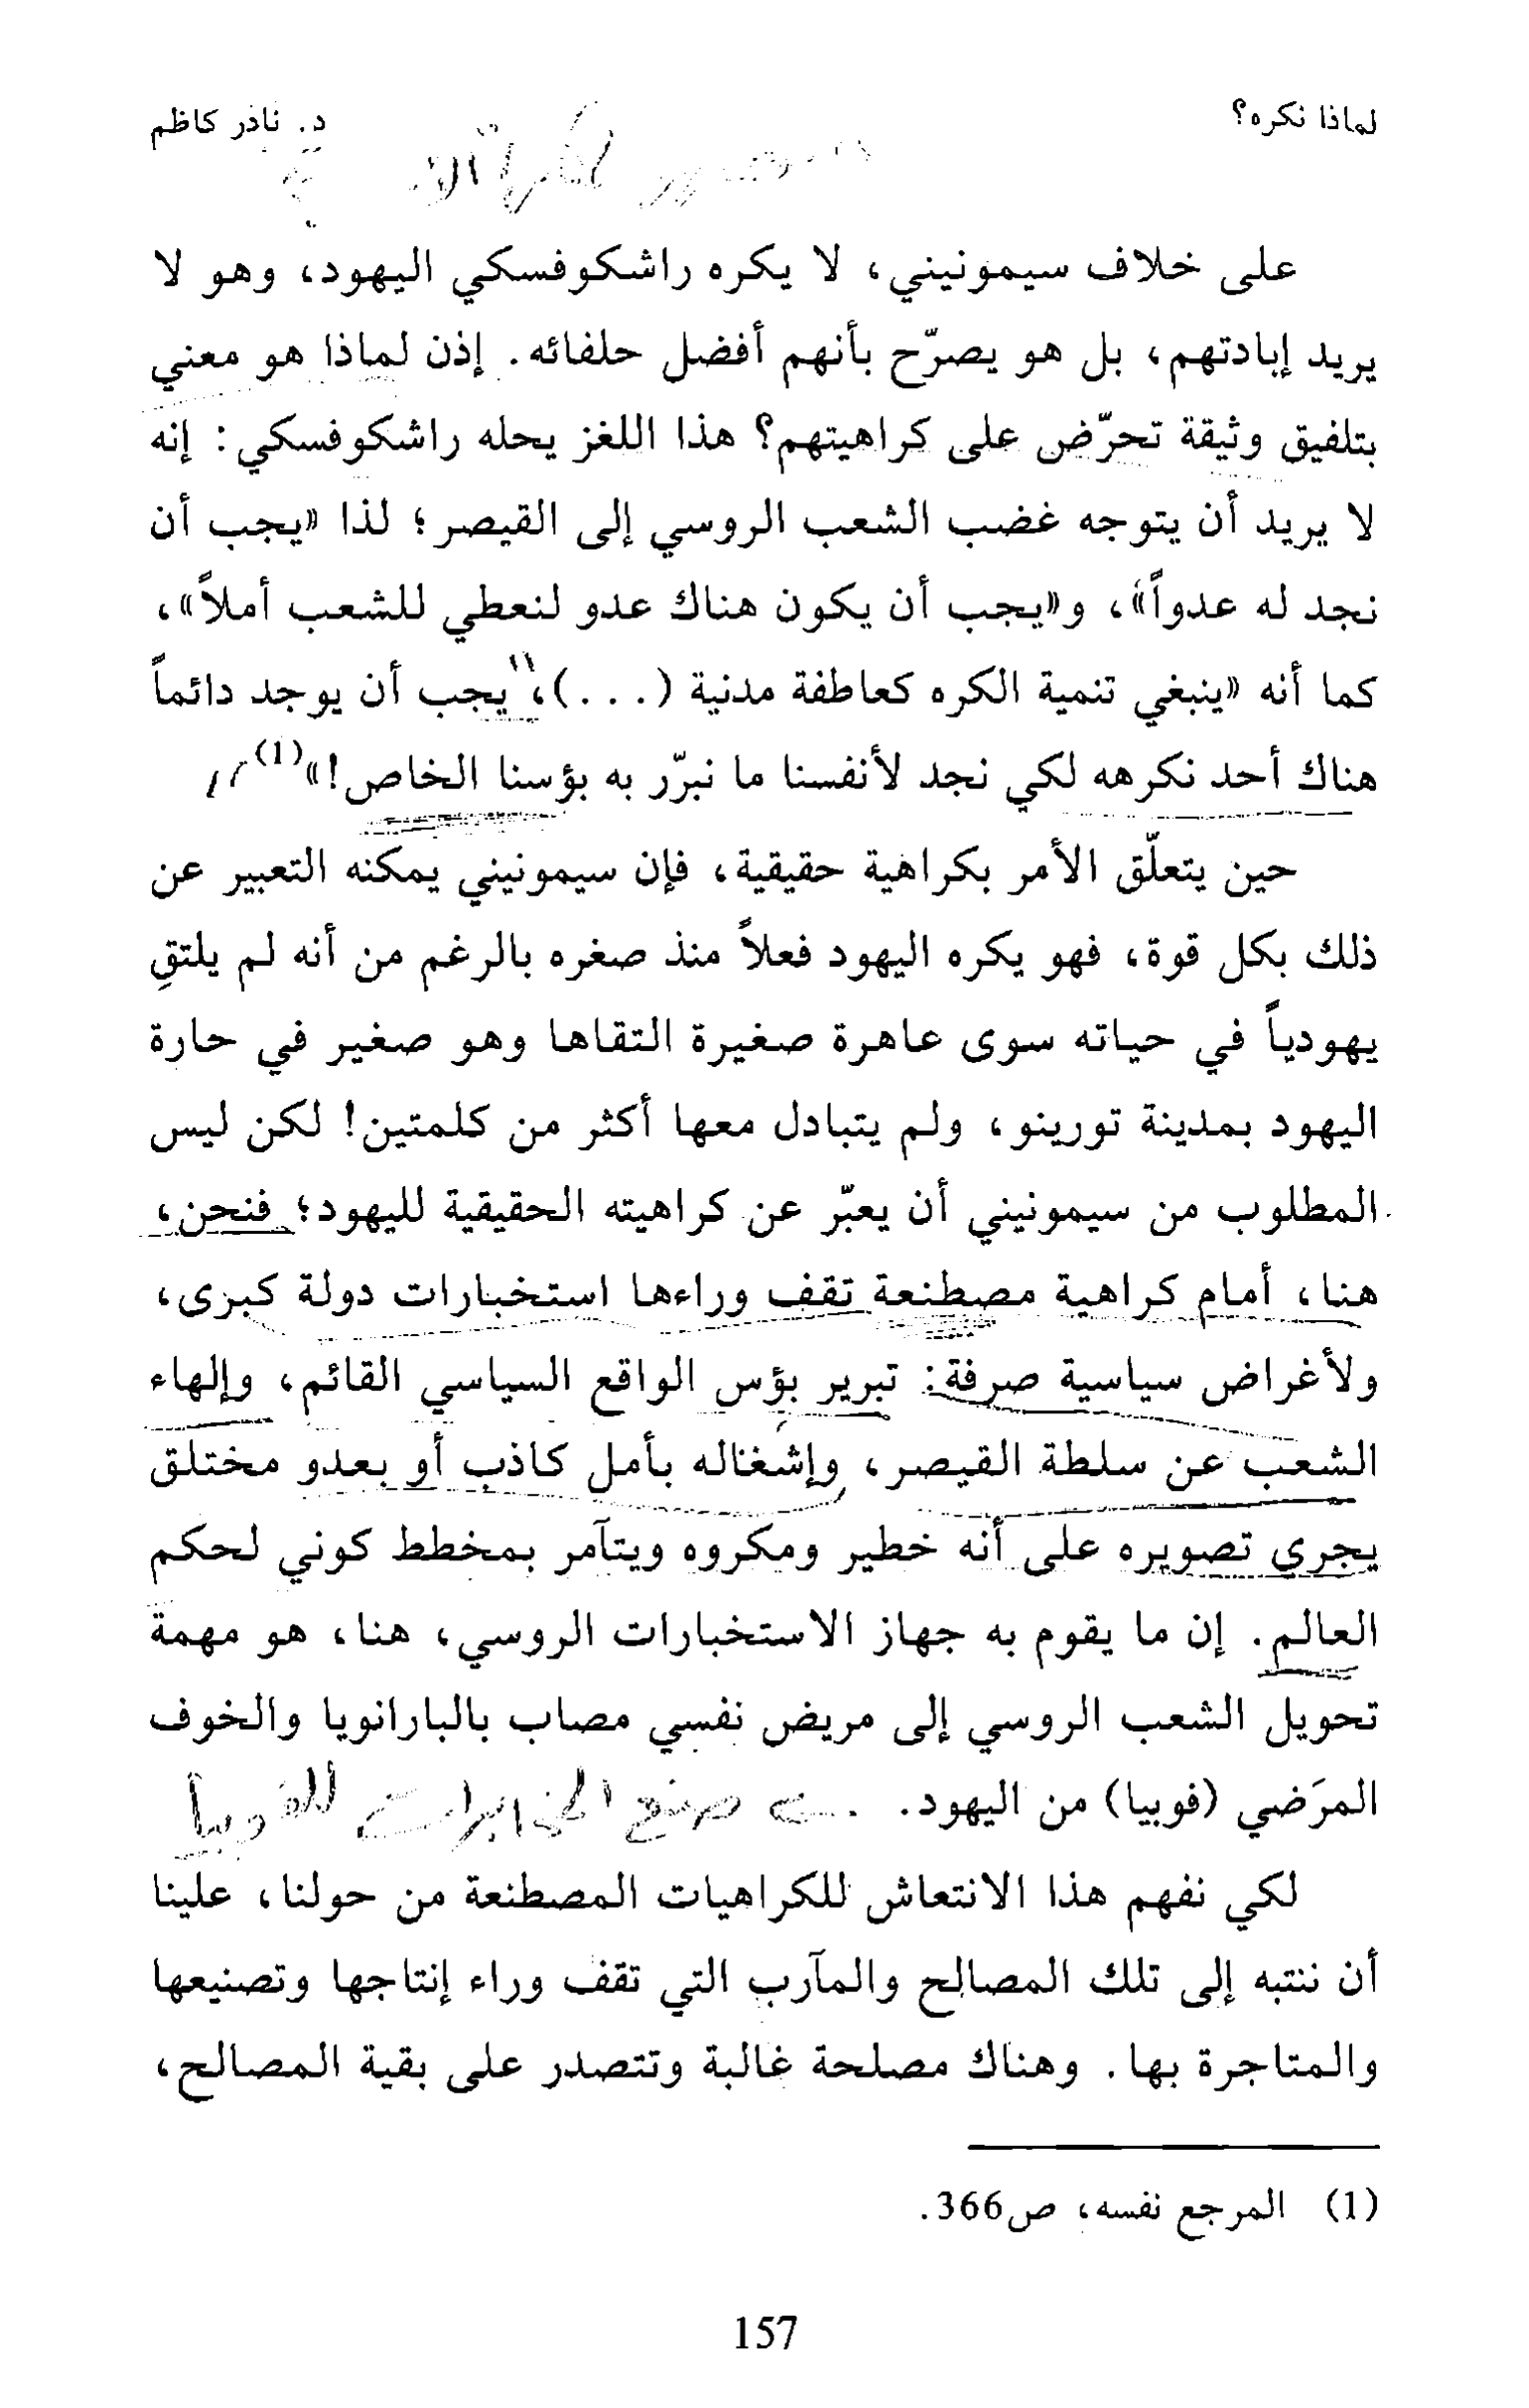 لماذا نكره؟ د. نادر كاظم
على خلاف سيمونيني، لا يكره راشكوفسكي اليهود، وهو لا
يريد إبادتهم، بل هو يصرّح بأنهم أفضل حلفائه. إذن لماذا هو معني
بتلفيق وثيقة تحرّض على كراهيتهم؟ هذا اللغز يحله راشكوفسكي: إنه
لا يريد أن يتوجه غضب الشعب الروسي إلى القيصر؛ لذا «يجب أن
نجد له عدواً»، و«يجب أن يكون هناك عدو لنعطي للشعب أملاً»،
كما أنه «ينبغي تنمية الكره كعاطفة مدنية (...)، يجب أن يوجد دائماً
هناك أحد نكرهه لكي نجد لأنفسنا ما نبرّر به بؤسنا الخاص!»(1)
حين يتعلّق الأمر بكراهية حقيقية، فإن سيمونيني يمكنه التعبير عن
ذلك بكل قوة، فهو يكره اليهود فعلاً منذ صغره بالرغم من أنه لم يلتقِ
يهودياً في حياته سوى عاهرة صغيرة التقاها وهو صغير في حارة
اليهود بمدينة تورينو، ولم يتبادل معها أكثر من كلمتين! لكن ليس
المطلوب من سيمونيني أن يعبّر عن كراهيته الحقيقية لليهود؛ فنحن،
هنا، أمام كراهية مصطنعة تقف وراءها استخبارات دولة كبرى،
ولأغراض سياسية صرفة: تبرير بؤس الواقع السياسي القائم، وإلهاء
الشعب عن سلطة القيصر، وإشغاله بأمل كاذب أو بعدو مختلق
يجري تصويره على أنه خطير ومكروه ويتآمر بمخطط كوني لحكم
العالم. إن ما يقوم به جهاز الاستخبارات الروسي، هنا، هو مهمة
تحويل الشعب الروسي إلى مريض نفسي مصاب بالبارانويا والخوف
المرَضي (فوبيا) من اليهود. صنع المخابرات للفوبيا
لكي نفهم هذا الانتعاش للكراهيات المصطنعة من حولنا، علينا
أن ننتبه إلى تلك المصالح والمآرب التي تقف وراء إنتاجها وتصنيعها
والمتاجرة بها. وهناك مصلحة غالبة وتتصدر على بقية المصالح،
(1) المرجع نفسه، ص366.
157